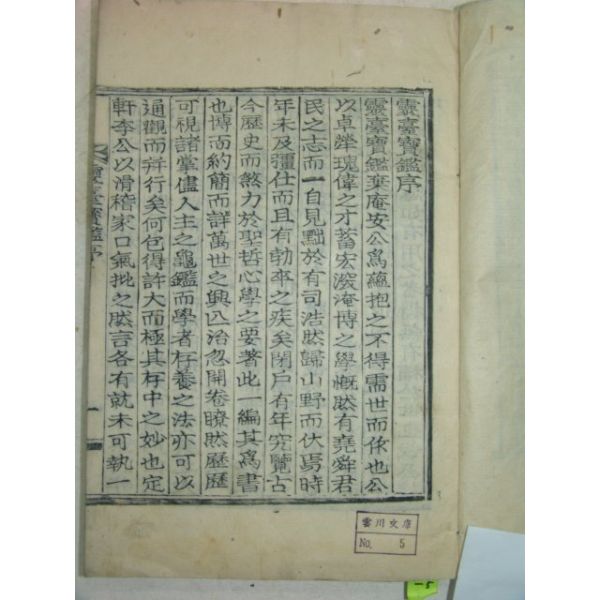 靈臺寶鑑序
靈臺寶鑑棄庵安公爲蘊抱之不得需世而作也公
以卓犖瑰偉之才蓄宏深淹博之學慨然有堯舜君
民之志而一自見黜於有司浩然歸山野而伏焉時
年未及彊仕而且有勃窣之疾矣閉戶有年究覽古
今歷史而煞力於聖哲心學之要著此一編其爲書
也博而約簡而詳萬世之興亾治忽開卷瞭然歷歷
可視諸掌儘人主之龜鑑而學者存養之法亦可以
通觀而幷行矣何包得許大而極其存中之妙也定
軒李公以滑稽家口氣批之然言各有就未可執一
靈臺寶鑑序
一
雲川文庫
No. 5
-5